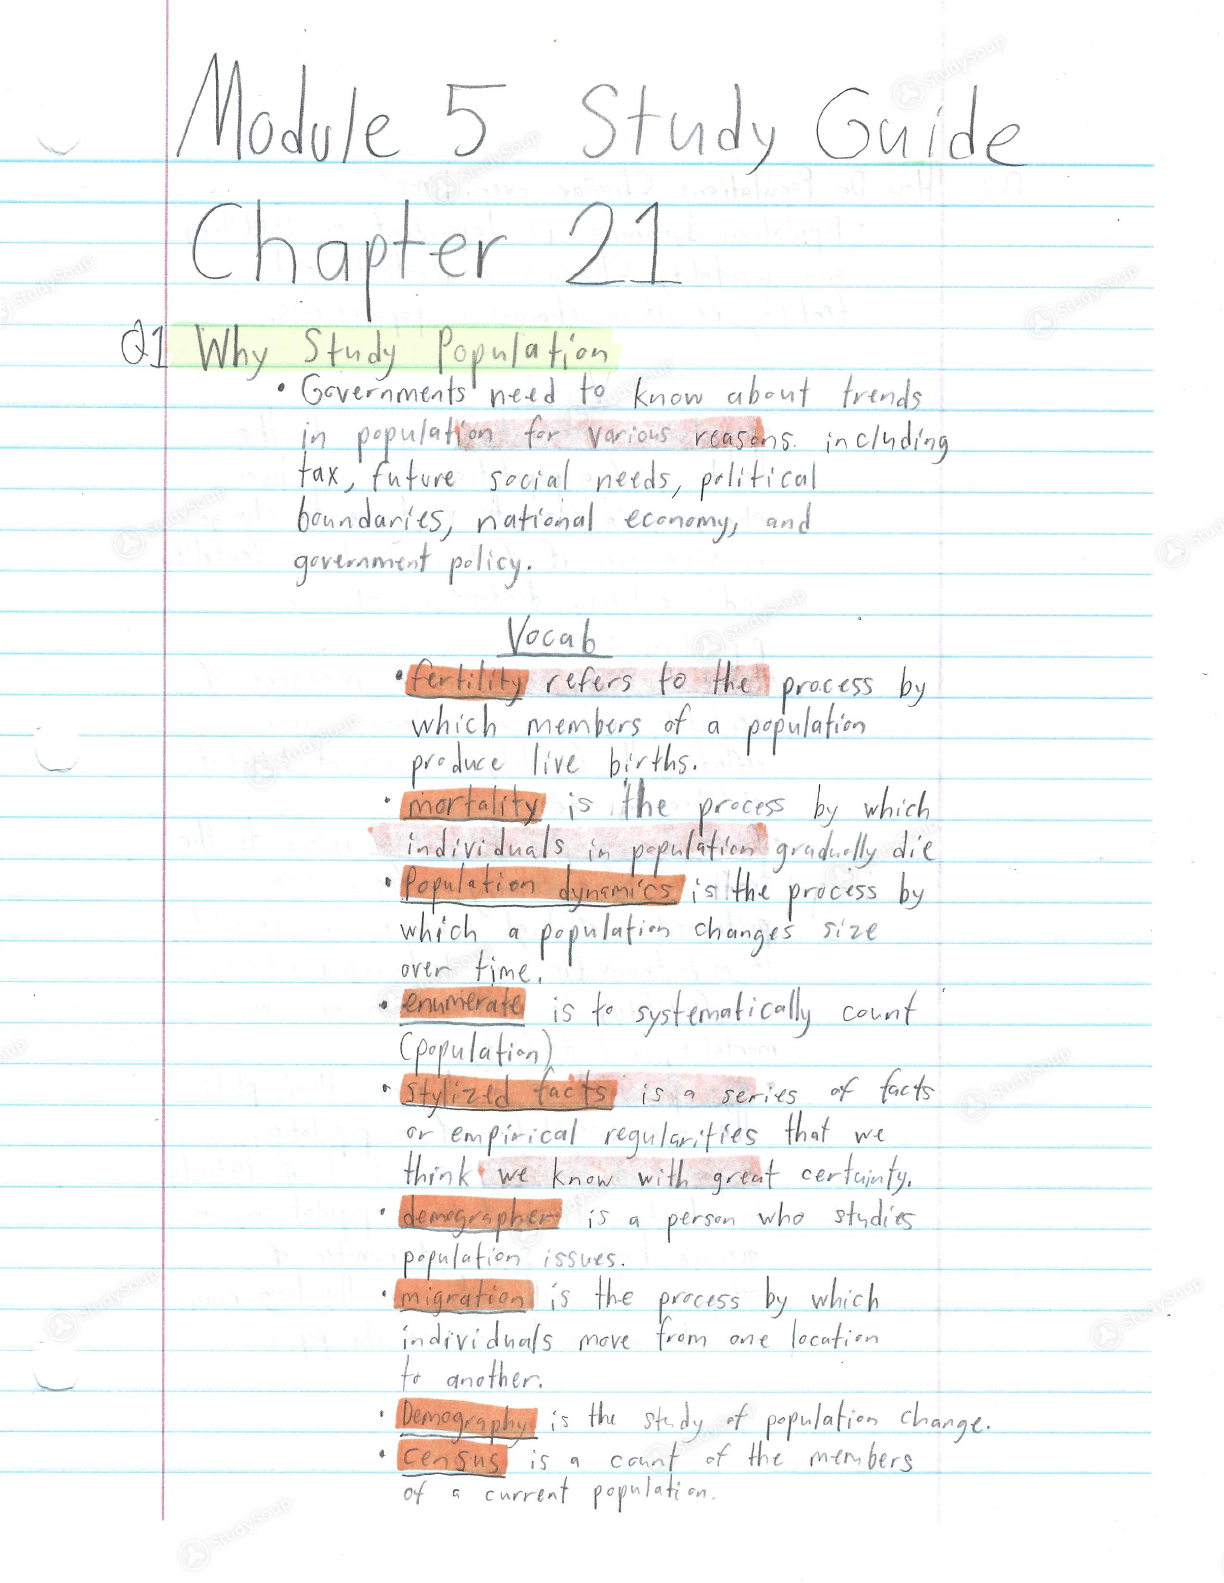 Module 5 Study Guide
Chapter 21
Q1 Why Study Population
• Governments need to know about trends
in population for various reasons. including
tax, future social needs, political
boundaries, national economy, and
government policy.
Vocab
• fertility refers to the process by
which members of a population
produce live births.
• mortality is the process by which
individuals in population gradually die
• Population dynamics is the process by
which a population changes size
over time.
• enumerate is to systematically count
(population)
• stylized facts is a series of facts
or empirical regularities that we
think we know with great certainty.
• demographer is a person who studies
population issues.
• migration is the process by which
individuals move from one location
to another.
• Demography is the study of population change.
• census is a count of the members
of a current population.
StudySoup